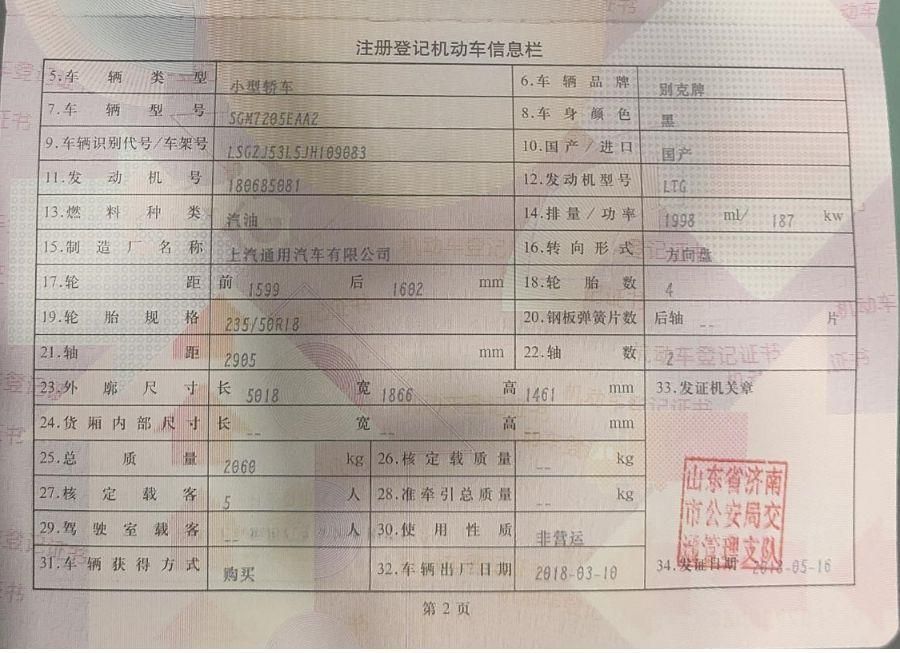 注册登记机动车信息栏
5.车辆类型 小型轿车 6.车辆品牌 别克牌
7.车辆型号 SGM7205EAA2 8.车身颜色 黑
9.车辆识别代号/车架号 LSGZJ53L5JH109083 10.国产/进口 国产
11.发动机号 180685081 12.发动机型号 LTG
13.燃料种类 汽油 14.排量/功率 1998 ml/ 187 kw
15.制造厂名称 上汽通用汽车有限公司 16.转向形式 方向盘
17.轮距 前 1599 后 1602 mm 18.轮胎数 4
19.轮胎规格 235/50R18 20.钢板弹簧片数 后轴 -- 片
21.轴距 2905 mm 22.轴数 2
23.外廓尺寸 长 5018 宽 1866 高 1461 mm 33.发证机关章
24.货厢内部尺寸 长 -- 宽 -- 高 -- mm
25.总质量 2060 kg 26.核定载质量 -- kg
27.核定载客 5 人 28.准牵引总质量 -- kg
29.驾驶室载客 -- 人 30.使用性质 非营运
31.车辆获得方式 购买 32.车辆出厂日期 2018-03-10 34.发证日期 2018-05-16
山东省济南
市公安局交
通管理支队
第2页